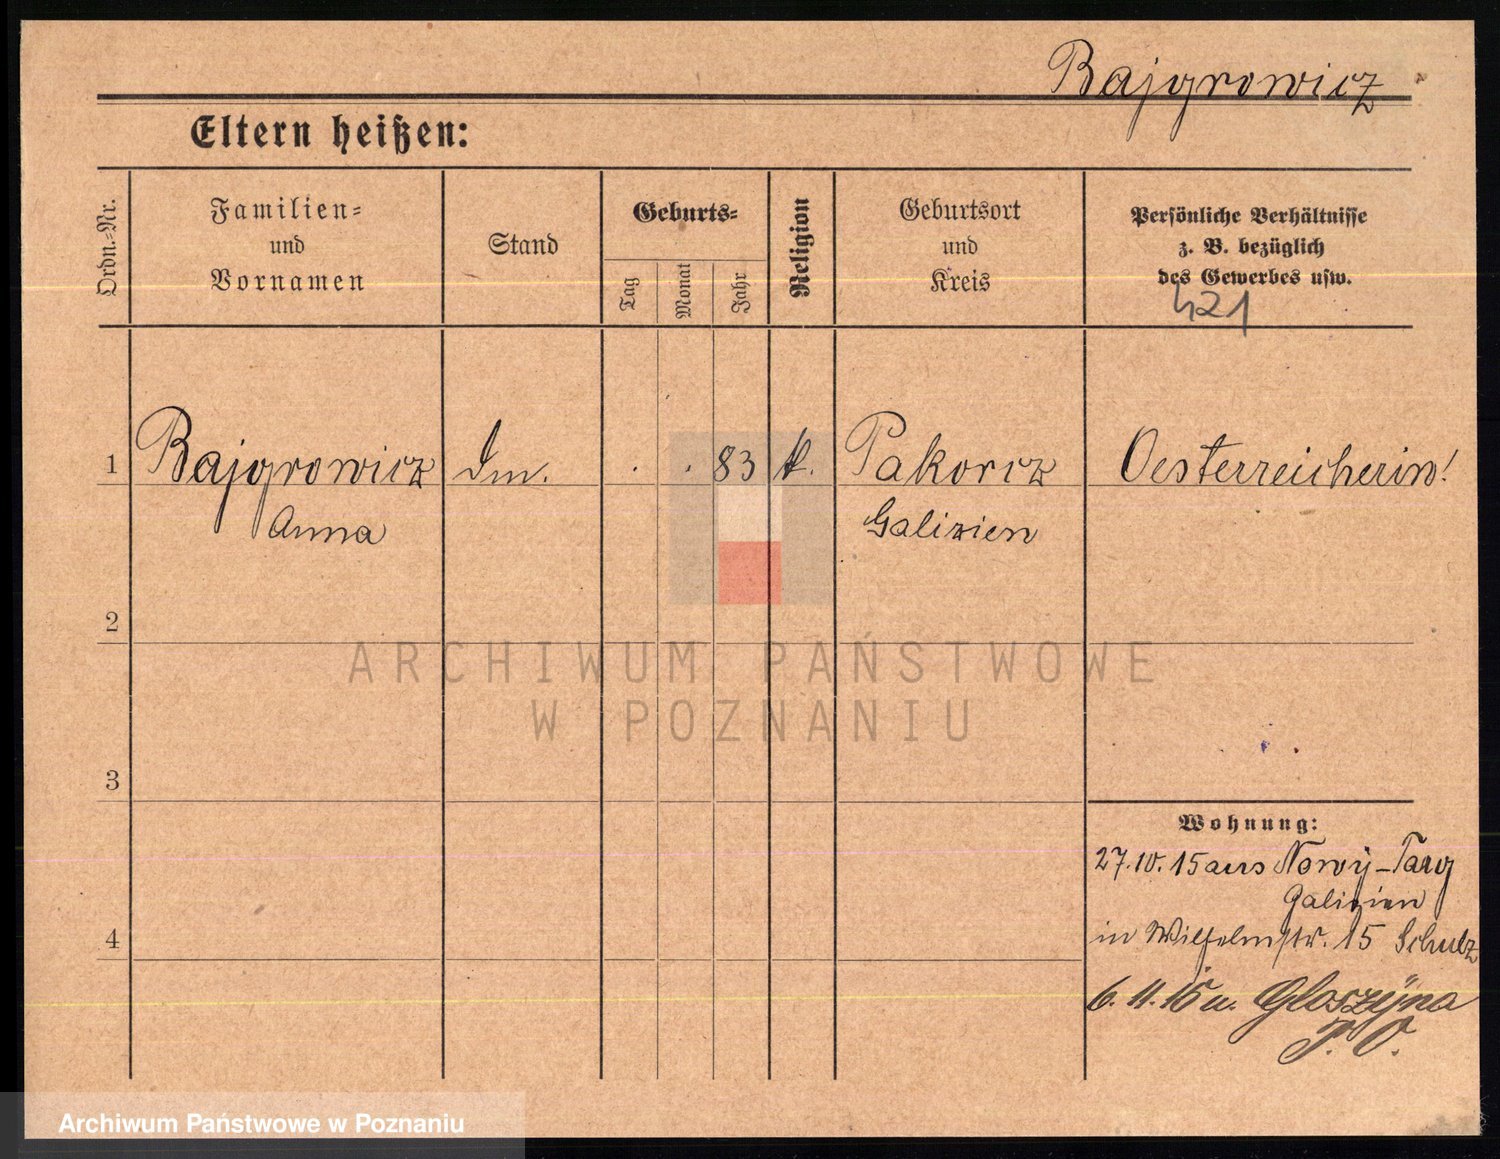 Bajgrowicz
Eltern heißen:
Ordn.=Nr.
Familien=
und
Vornamen
Stand
Geburts=
Tag
Monat
Jahr
Religion
Geburtsort
und
Kreis
Persönliche Verhältnisse
z. B. bezüglich
des Gewerbes usw.
421
1 Bajgrowicz . . 83 k. Pakorcz Oesterreicherin!
Anna Galizien
2
ARCHIWUM PAŃSTWOWE
W POZNANIU
3
Wohnung:
27.10.15 aus Nowy-Targ
Galizien
4
in Wilhelmstr. 15 Schulz
6. 11. 15 n. Gloszyna
P. O.
Archiwum Państwowe w Poznaniu